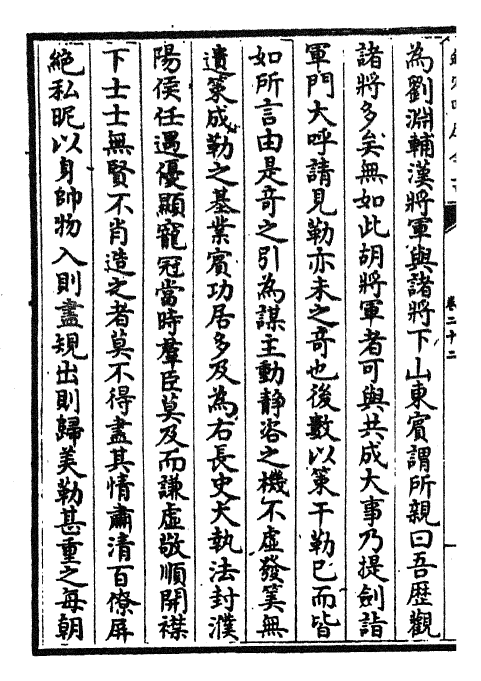 卷二十二
為劉淵輔漢將軍與諸將下山東賓謂所親曰吾歷觀
諸將多矣無如此胡將軍者可與共成大事乃提劍詣
軍門大呼請見勒亦未之竒也後數以策干勒已而皆
如所言由是竒之引為謀主動静咨之機不虛發算無
遺策成勒之基業賓功居多及為右長史大執法封濮
陽侯任遇優顯寵冠當時羣臣莫及而謙虛敬順開襟
下士士無賢不肖造之者莫不得盡其情肅清百僚屏
絶私昵以身帥物入則盡規出則歸美勒甚重之每朝